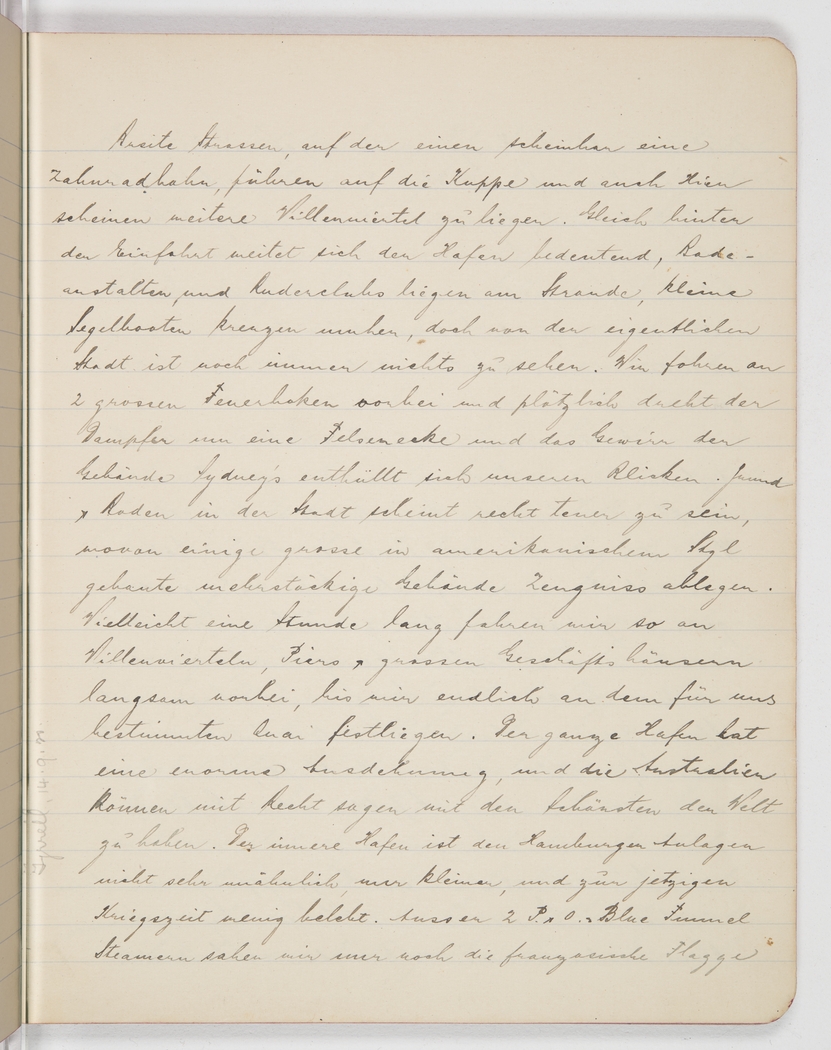 Breite Strassen, auf der einen scheinbar eine
Zahnradbahn, führen auf die Kuppe und auch Hier
scheinen weitere Villenviertel zu liegen. Gleich hinter
der Einfahrt weitet sich der Hafen bedeutend, Bade-
anstalten, und Ruderclubs liegen am Strande, kleine
Segelbooten kreuzen umher, doch von der eigentlichen
Stadt ist noch immer nichts zu sehen. Wir fahren an
2 grossen Feuerbaken vorbei und plötzlich dreht der
Dampfer um eine Felsenecke und das Gewirr der
Gebäude Sydney's enthüllt sich unseren Blicken. Grund
& Boden in der Stadt scheint recht teuer zu sein,
wovon einige grosse in amerikanischem Styl
gebaute mehrstöckige Gebäude Zeugniss ablegen.
Vielleicht eine Stunde lang fahren wir so an
Villenvierteln, Piers & grossen Geschäftshäusern
langsam vorbei, bis wir endlich an dem für uns
bestimmten Quai festliegen. Der ganze Hafen hat
eine enorme Ausdehnung, und die Australier
können mit Recht sagen mit den Schönsten der Welt
zu haben. Der innere Hafen ist den Hamburger Anlagen
nicht sehr unähnlich, nur kleiner, und zur jetzigen
Kriegszeit wenig belebt. Ausser 2 P. & O. & Blue Funnel
Steamern sahen wir nur noch die französische Flagge
14.9.21.